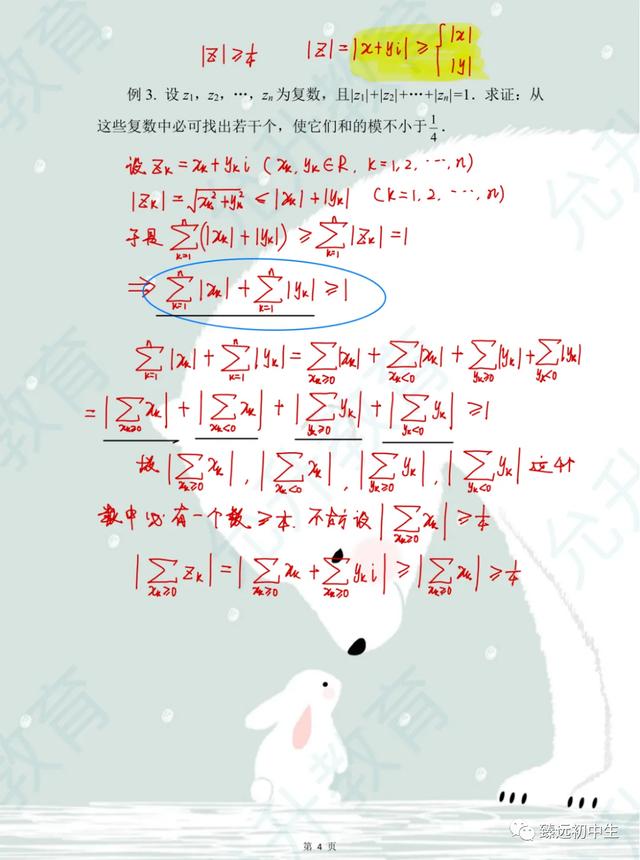 |z|≥1/4 |z|=|x+yi|≥{|x| |y|
例 3. 设 z₁，z₂，…，zₙ 为复数，且|z₁|+|z₂|+…+|zₙ|=1．求证：从
这些复数中必可找出若干个，使它们和的模不小于1/4．
设 zₖ=xₖ+yₖi (xₖ,yₖ∈R, k=1,2,…,n)
|zₖ|=√(xₖ²+yₖ²)≤|xₖ|+|yₖ| (k=1,2,…,n)
于是 ∑ₖ₌₁ⁿ(|xₖ|+|yₖ|)≥∑ₖ₌₁ⁿ|zₖ|=1
⇒ ∑ₖ₌₁ⁿ|xₖ|+∑ₖ₌₁ⁿ|yₖ|≥1
∑ₖ₌₁ⁿ|xₖ|+∑ₖ₌₁ⁿ|yₖ|=∑_{xₖ≥0}|xₖ|+∑_{xₖ<0}|xₖ|+∑_{yₖ≥0}|yₖ|+∑_{yₖ<0}|yₖ|
=|∑_{xₖ≥0}xₖ|+|∑_{xₖ<0}xₖ|+|∑_{yₖ≥0}yₖ|+|∑_{yₖ<0}yₖ|≥1
故|∑_{xₖ≥0}xₖ|,|∑_{xₖ<0}xₖ|,|∑_{yₖ≥0}yₖ|,|∑_{yₖ<0}yₖ|这4个
数中必有一个数≥1/4. 不妨设|∑_{xₖ≥0}xₖ|≥1/4
|∑_{xₖ≥0}zₖ|=|∑_{xₖ≥0}xₖ+∑_{xₖ≥0}yₖi|≥|∑_{xₖ≥0}xₖ|≥1/4
臻远初中生
第 4 页